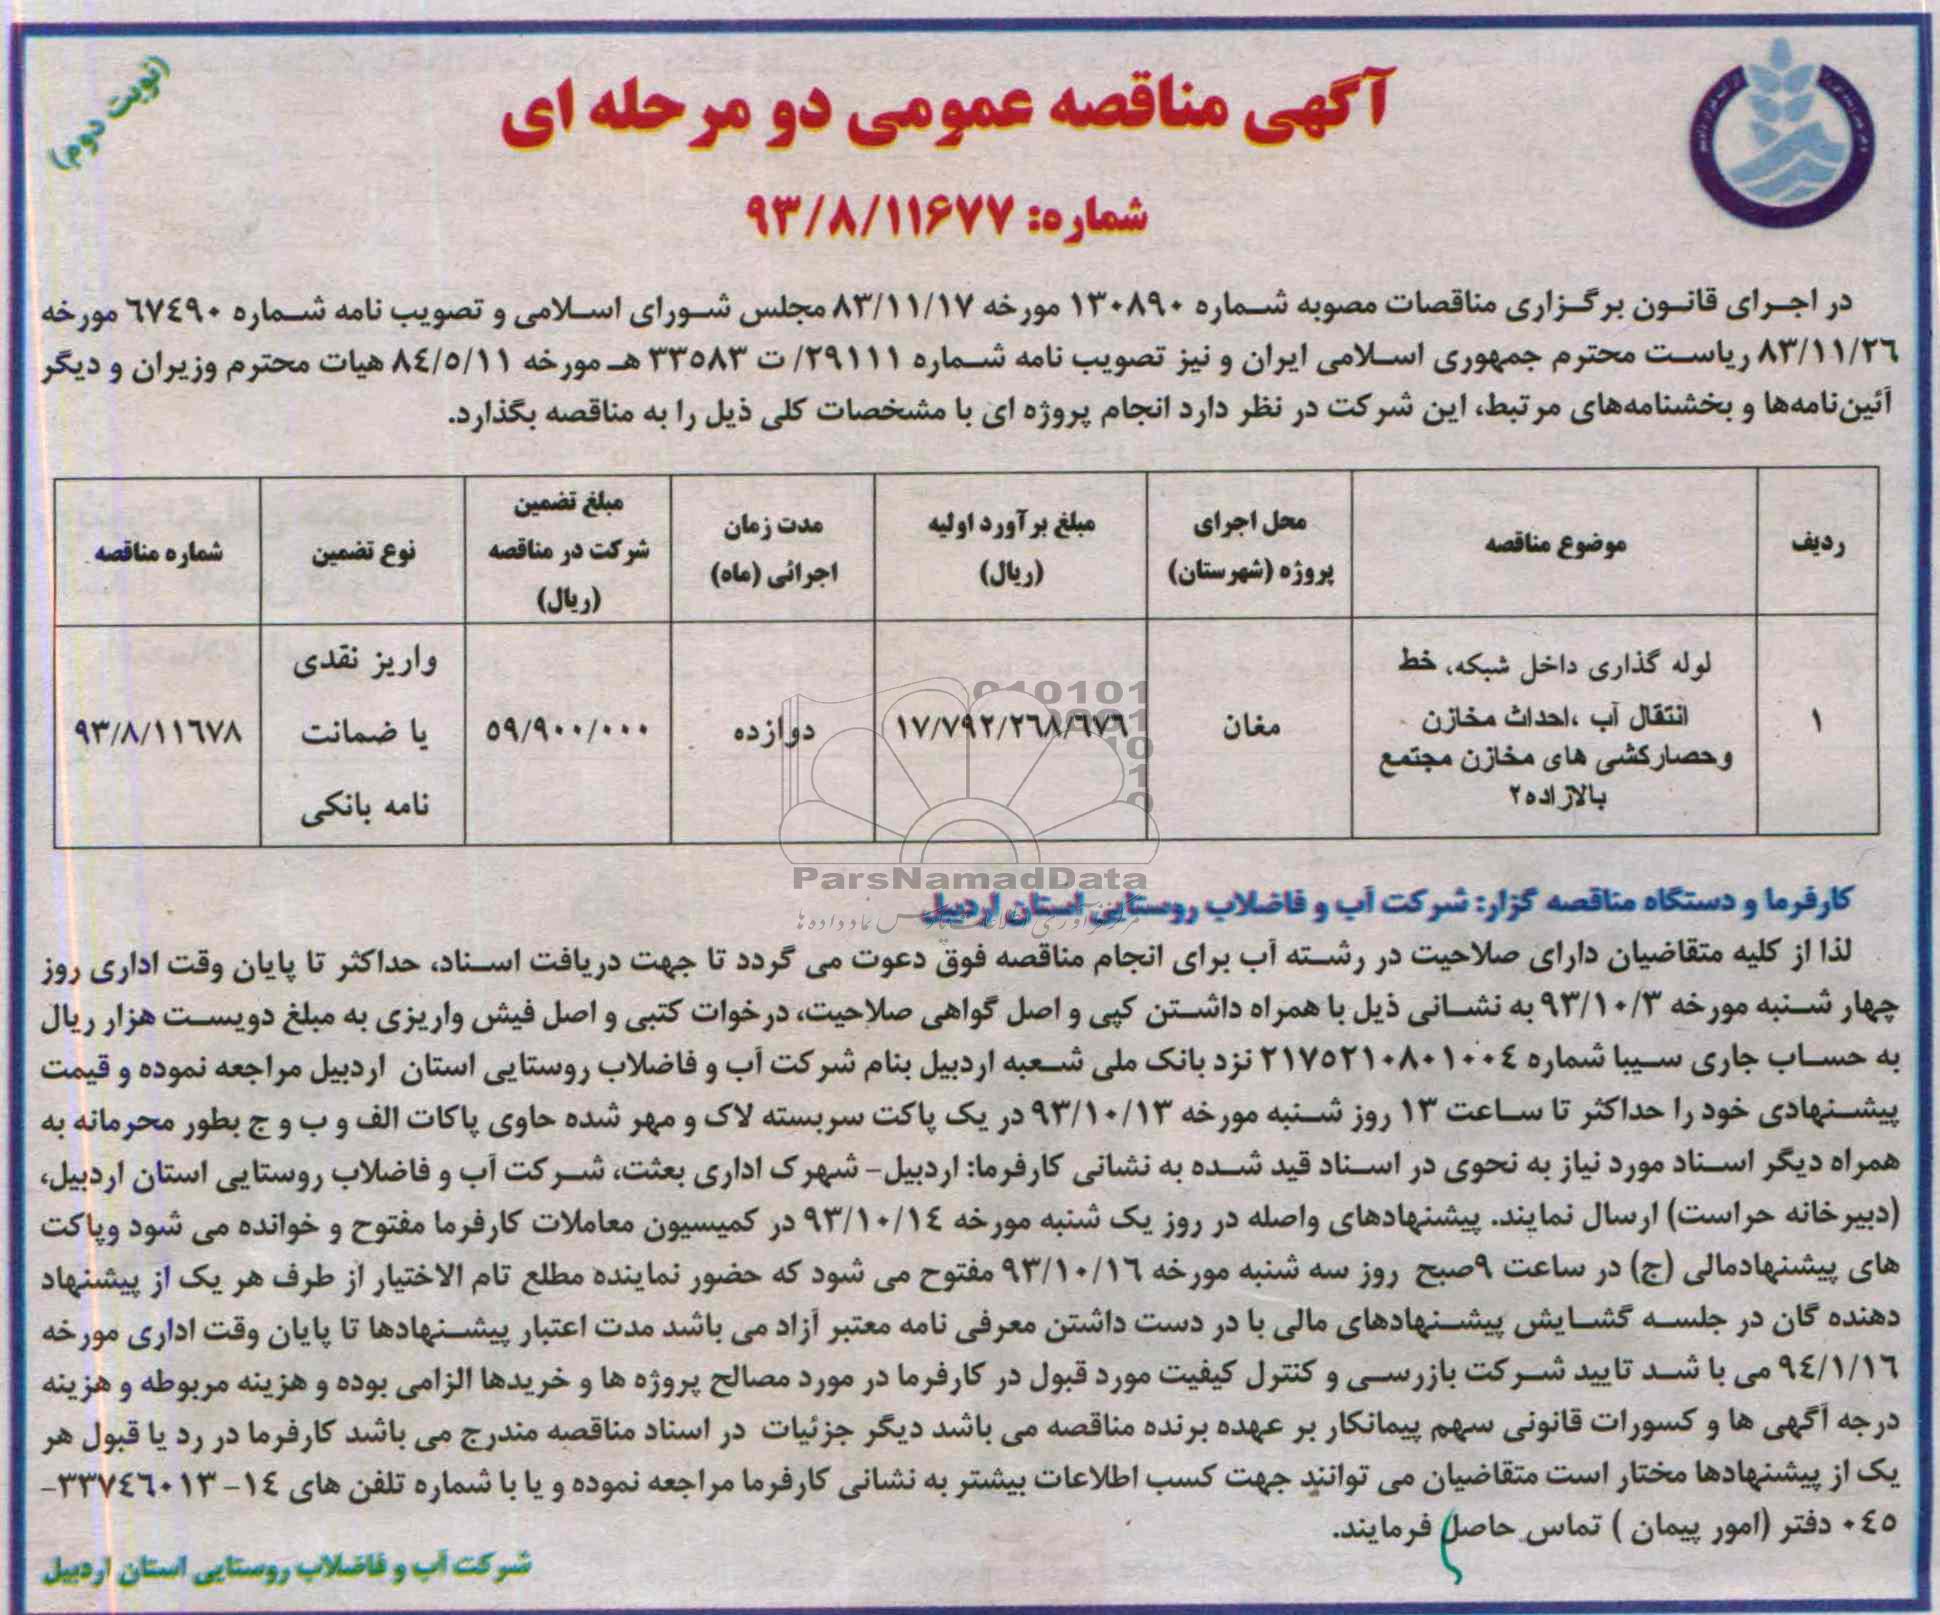 (نوبت دوم)
آگهی مناقصه عمومی دو مرحله ای
شماره: ۹۳/۸/۱۱۶۷۷
در اجرای قانون برگزاری مناقصات مصوبه شماره ۱۳۰۸۹۰ مورخه ۸۳/۱۱/۱۷ مجلس شورای اسلامی و تصویب نامه شماره ۶۷٤۹۰ مورخه
۸۳/۱۱/۲٦ ریاست محترم جمهوری اسلامی ایران و نیز تصویب نامه شماره ۲۹۱۱۱/ ت ۳۳۵۸۳ هـ مورخه ۸٤/۵/۱۱ هیات محترم وزیران و دیگر
آئین‌نامه‌ها و بخشنامه‌های مرتبط، این شرکت در نظر دارد انجام پروژه ای با مشخصات کلی ذیل را به مناقصه بگذارد.
ردیف
موضوع مناقصه
محل اجرای
پروژه (شهرستان)
مبلغ برآورد اولیه
(ریال)
مدت زمان
اجرائی (ماه)
مبلغ تضمین
شرکت در مناقصه
(ریال)
نوع تضمین
شماره مناقصه
۱
لوله گذاری داخل شبکه، خط
انتقال آب ،احداث مخازن
وحصارکشی های مخازن مجتمع
بالازاده۲
مغان
۱۷/۷۹۲/۲٦۸/٦۷٦
دوازده
۵۹/۹۰۰/۰۰۰
واریز نقدی
یا ضمانت
نامه بانکی
۹۳/۸/۱۱٦۷۸
ParsNamadData
کارفرما و دستگاه مناقصه گزار: شرکت آب و فاضلاب روستایی استان اردبیل
لذا از کلیه متقاضیان دارای صلاحیت در رشته آب برای انجام مناقصه فوق دعوت می گردد تا جهت دریافت اسناد، حداکثر تا پایان وقت اداری روز
چهار شنبه مورخه ۹۳/۱۰/۳ به نشانی ذیل با همراه داشتن کپی و اصل گواهی صلاحیت، درخوات کتبی و اصل فیش واریزی به مبلغ دویست هزار ریال
به حساب جاری سیبا شماره ۲۱۷۵۲۱۰۸۰۱۰۰٤ نزد بانک ملی شعبه اردبیل بنام شرکت آب و فاضلاب روستایی استان اردبیل مراجعه نموده و قیمت
پیشنهادی خود را حداکثر تا ساعت ۱۳ روز شنبه مورخه ۹۳/۱۰/۱۳ در یک پاکت سربسته لاک و مهر شده حاوی پاکات الف و ب و ج بطور محرمانه به
همراه دیگر اسناد مورد نیاز به نحوی در اسناد قید شده به نشانی کارفرما: اردبیل- شهرک اداری بعثت، شرکت آب و فاضلاب روستایی استان اردبیل،
(دبیرخانه حراست) ارسال نمایند. پیشنهادهای واصله در روز یک شنبه مورخه ۹۳/۱۰/۱٤ در کمیسیون معاملات کارفرما مفتوح و خوانده می شود وپاکت
های پیشنهادمالی (ج) در ساعت ۹صبح روز سه شنبه مورخه ۹۳/۱۰/۱٦ مفتوح می شود که حضور نماینده مطلع تام الاختیار از طرف هر یک از پیشنهاد
دهنده گان در جلسه گشایش پیشنهادهای مالی با در دست داشتن معرفی نامه معتبر آزاد می باشد مدت اعتبار پیشنهادها تا پایان وقت اداری مورخه
۹٤/۱/۱٦ می با شد تایید شرکت بازرسی و کنترل کیفیت مورد قبول در کارفرما در مورد مصالح پروژه ها و خریدها الزامی بوده و هزینه مربوطه و هزینه
درجه آگهی ها و کسورات قانونی سهم پیمانکار بر عهده برنده مناقصه می باشد دیگر جزئیات در اسناد مناقصه مندرج می باشد کارفرما در رد یا قبول هر
یک از پیشنهادها مختار است متقاضیان می توانند جهت کسب اطلاعات بیشتر به نشانی کارفرما مراجعه نموده و یا با شماره تلفن های ۱٤- ۳۳۷٤٦۰۱۳-
۰٤۵ دفتر (امور پیمان ) تماس حاصل فرمایند.
شرکت آب و فاضلاب روستایی استان اردبیل